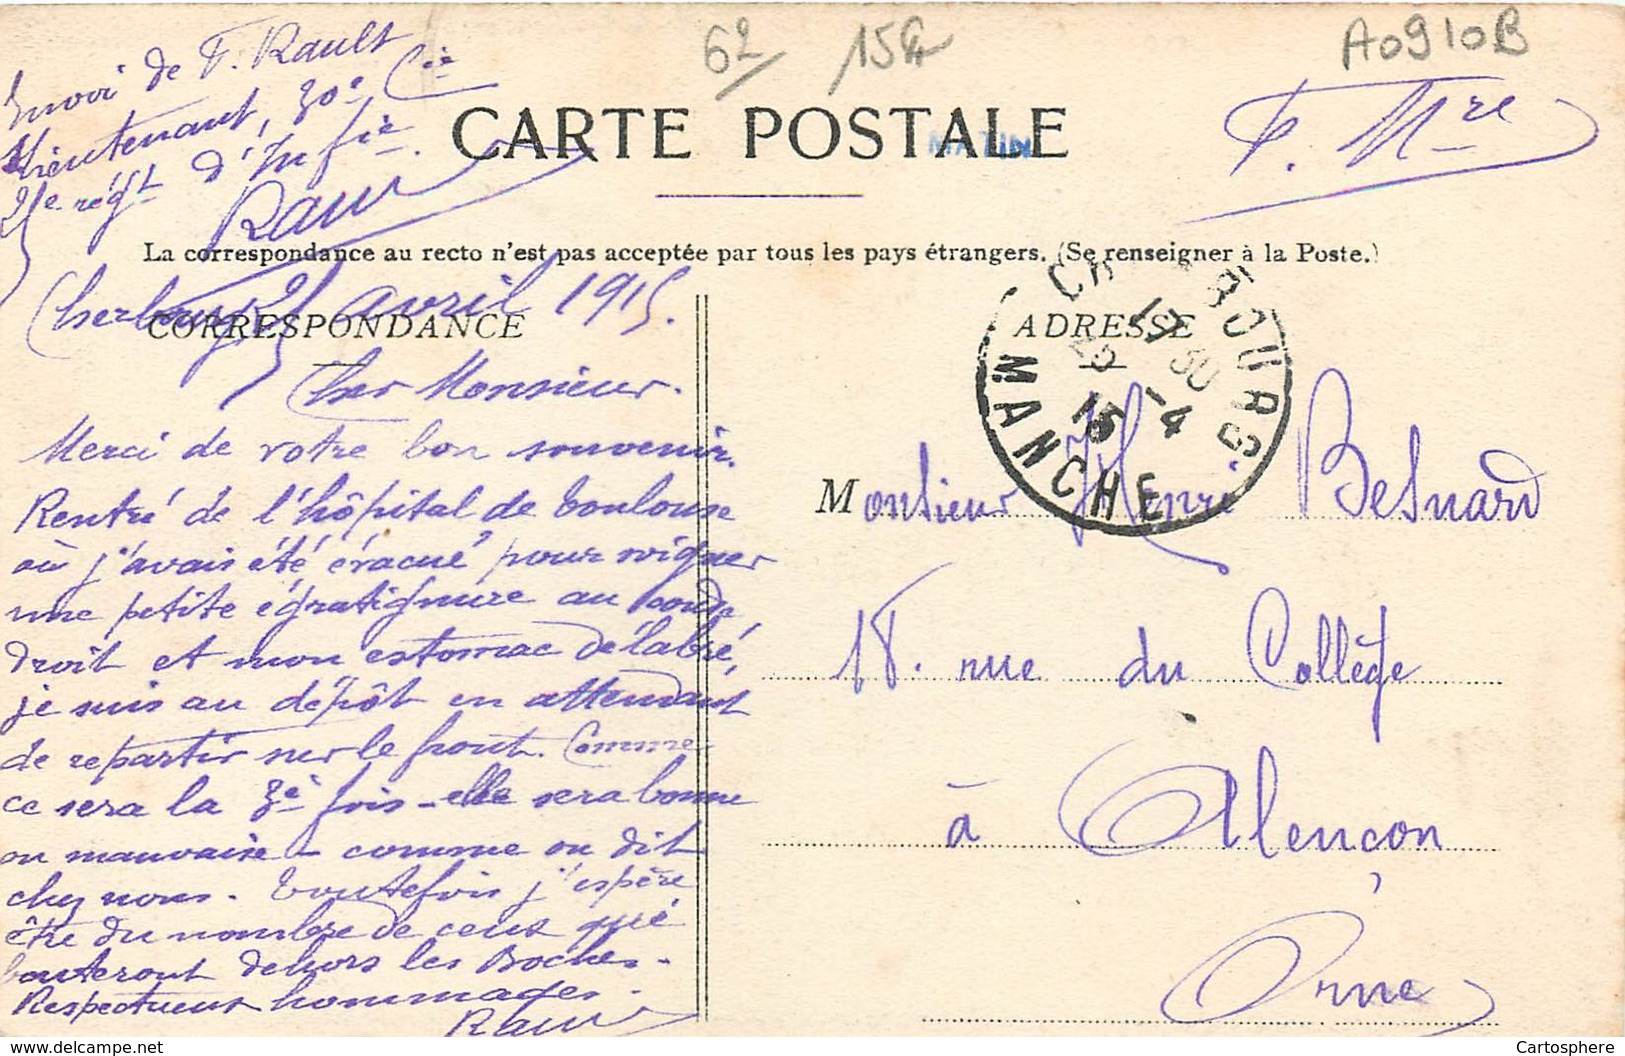 62 15f A0910B
Envoi de F. Rault
Lieutenant, 30e Cie
25e régt d'Infie
Rault
F. Mre
CARTE POSTALE
MAZIN
La correspondance au recto n'est pas acceptée par tous les pays étrangers. (Se renseigner à la Poste.)
Cherbourg, 25 avril 1915.
CORRESPONDANCE
Cher Monsieur.
Merci de votre bon souvenir.
Rentré de l'hôpital de Toulouse
où j'avais été évacué pour soigner
une petite égratignure au coude
droit et mon estomac délabré,
je suis au dépôt en attendant
de repartir sur le front. Comme
ce sera la 3e fois – elle sera bonne
ou mauvaise – comme on dit
chez nous. Toutefois j'espère
être du nombre de ceux qui
bouteront dehors les Boches.
Respectueux hommages.
Rault
ADRESSE
CHERBOURG
17 30
25 -4
15
MANCHE
Monsieur Henri Besnard
18. rue du Collège
à Alençon
Orne
delcampe.net
Cartosphere